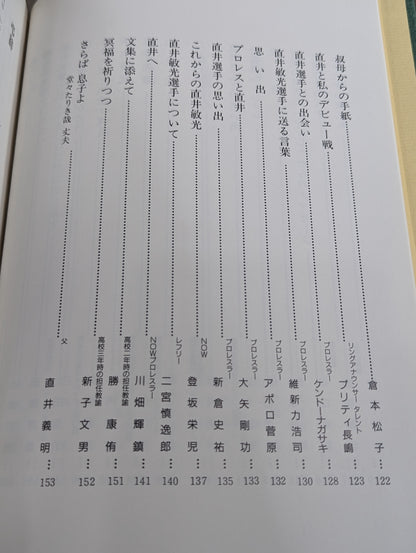 叔母からの手紙……倉本松子……122
直井と私のデビュー戦……リングアナウンサー タレント プリティ長嶋……123
直井選手との出会い……プロレスラー ケンドーナガサキ……128
直井敏光選手に送る言葉……プロレスラー 維新力浩司……130
思い出……プロレスラー アポロ菅原……132
プロレスと直井……プロレスラー 大矢剛功……133
直井選手の思い出……プロレスラー 新倉史祐……135
これからの直井敏光……NOW 登坂栄児……137
直井敏光選手について……レフリー 二宮慎逸郎……140
直井へ……NOWプロレスラー 川畑輝鎮……141
文集に添えて……高校二年時の担任教諭 勝康侑……151
冥福を祈りつつ……高校三年時の担任教諭 新子文男……152
さらば 息子よ
堂々たりき哉 丈夫……父 直井義明……153